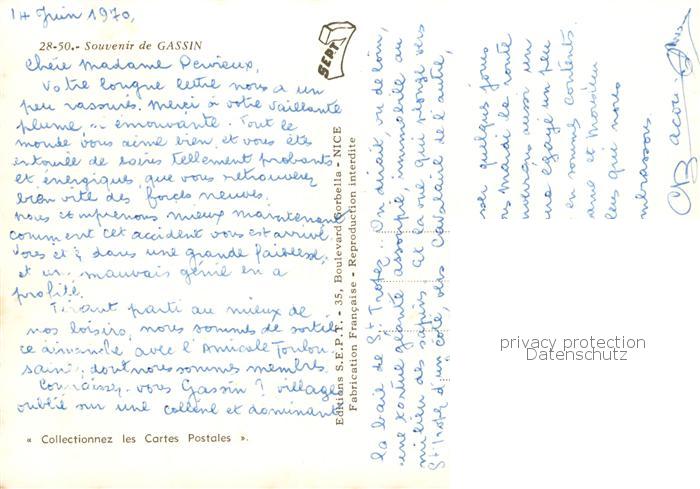 14 Juin 1970,
28-50.- Souvenir de GASSIN
SEPT
Chère Madame
Votre longue lettre nous a un
peu rassurés. merci à votre vaillante
plume, si émouvante. Tout le
monde vous aime bien, et vous êtes
entourée de soins tellement probants
et énergiques, que vous retrouverez
bien vite des forces neuves.
nous comprenons mieux maintenant
comment cet accident vous est arrivé.
Vous étiez dans une grande faiblesse,
et un mauvais génie en a
profité.
Tirant parti au mieux de
nos loisirs, nous sommes de sortie
ce dimanche avec l'Amicale Toulou-
saine, dont nous sommes membres.
Connaissez-vous Gassin ? village
oublié sur une colline et dominant
« Collectionnez les Cartes Postales ».
Editions S.E.P.T. - 35, Boulevard Gorbella - NICE
Fabrication Française - Reproduction interdite
la baie de St Tropez. On dirait, vu de loin,
une tortue géante assoupie, immobile au
milieu des sapins. Et la vue qui plonge vers
St Tropez d'un côté, vers Cavalaire de l'autre,
ser quelques jours
us mardi la route
ndrons aussi un
un peu
en somme contents.
ame et Monsieur
leus qui nous
mbrassons
privacy protection
Datenschutz